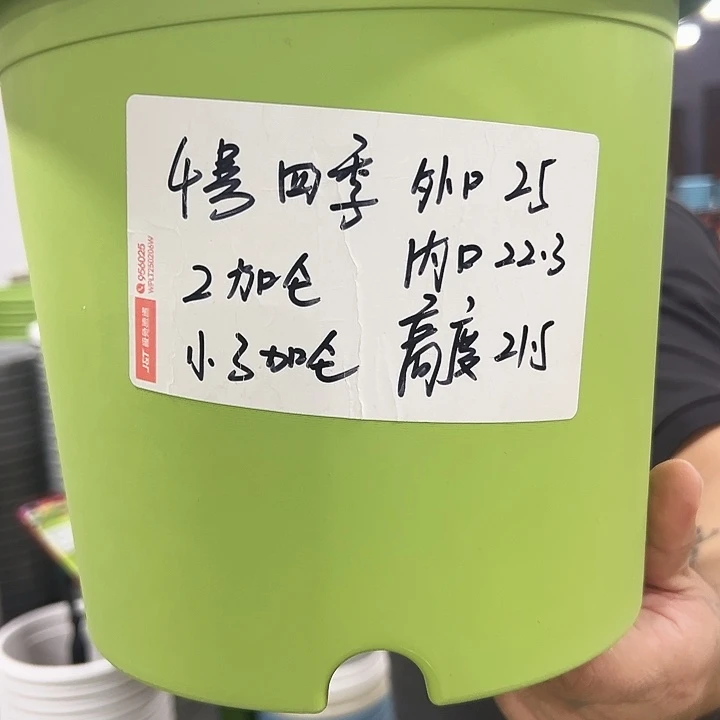 4号 四季 外口 25
2加仑 内口 22.3
小3加仑 高度 21.5
J&T 极兔速递
956025
WFLT250206W